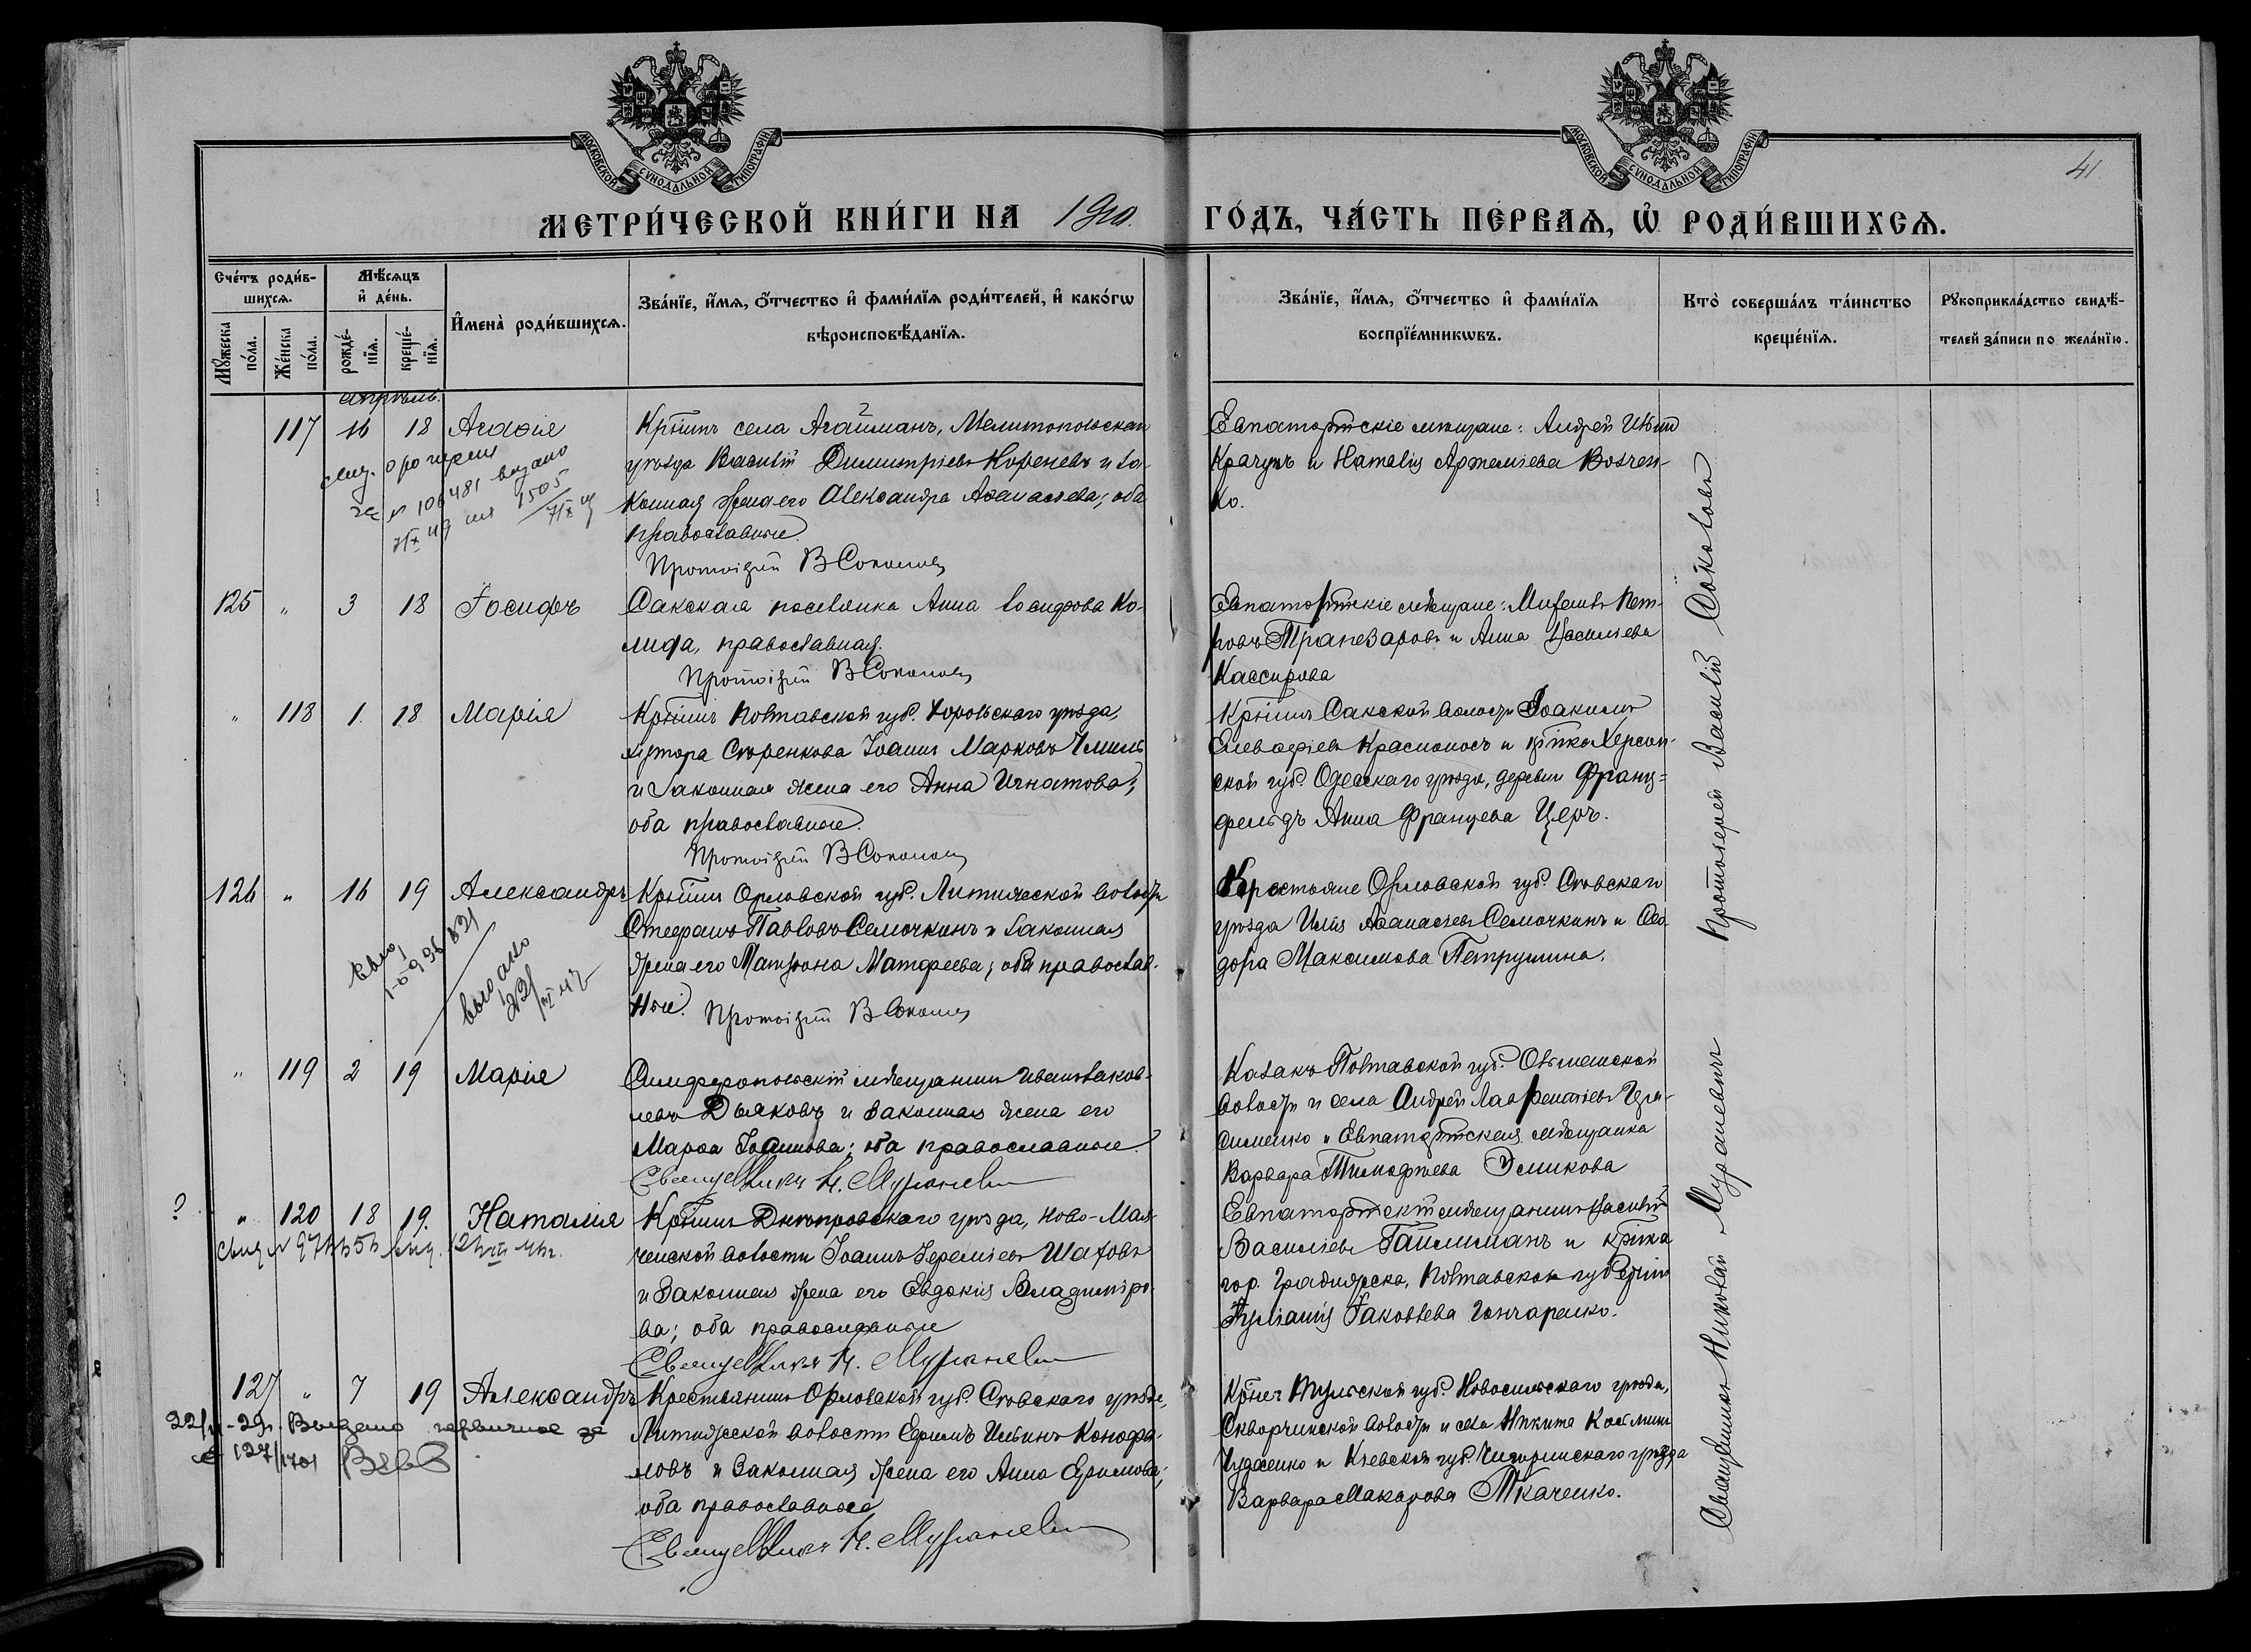 МОСКОВСКОЙ СѴНОДАЛЬНОЙ ТИПОГРАФІИ
МОСКОВСКОЙ СѴНОДАЛЬНОЙ ТИПОГРАФІИ
41.
МЕТРИ́ЧЕСКОЙ КНИ́ГИ НА 1910. ГО́ДЪ, ЧА́СТЬ ПЕ́РВАѦ, Ѡ҆ РОДИ́ВШИХСѦ.
Сче́тъ роди́в-
шихсѧ.
Мѣ́сѧцъ
и҆ де́нь.
Мꙋ́жеска
по́ла.
Же́нска
по́ла.
рожде́-
нїѧ.
креще́-
нїѧ.
И҆мена̀ роди́вшихсѧ.
Зва́нїе, и҆́мѧ, ѻ҆́тчество и҆ фами́лїѧ роди́телей, и҆ како́гѡ
вѣроисповѣ́данїѧ.
Зва́нїе, и҆́мѧ, ѻ҆́тчество и҆ фами́лїѧ
воспрїе́мникѡвъ.
Кто̀ соверша́лъ та́инство
креще́нїѧ.
Рꙋкоприкла́дство свидѣ́-
телей за́писи по жела́нїю.
апрѣль.
117 16 18 Агаѳія
Кр͞нинъ села Агайманъ, Мелитопольскаго
уѣзда Василій Димитріевъ Кореневъ и за-
конная жена его Александра Аѳанасіева; оба
православные.
Протоіерей В Соколовъ
Евпаторійскіе мѣщане: Андрей
Крачунъ и Наталія Артеміева
ко.
№ 106481 выдано
125 " 3 18 Іосифъ
Сакская поселянка Анна Іосифова Ко-
лифа, православная.
Протоіерей В Соколовъ
Евпаторійскіе мѣщане: Михаилъ Пет-
ровъ Трапезаровъ и Анна Васильева
Кассирова
" 118 1. 18 Марія
Кр͞нинъ Полтавской губ. Хорольскаго уѣзда,
хутора Старенкова Іоаннъ Марковъ Чмиль
и законная жена его Анна Игнатова;
оба православные.
Протоіерей В Соколовъ
Кр͞нинъ Сакской волости Іоакимъ
Елевѳеріевъ Красноносъ и кр͞нка Херсон-
ской губ. Одесскаго уѣзда, деревни Франц-
фельдъ Анна Францева Церъ.
126 " 16 19 Александръ
Кр͞нинъ Орловской губ. Литижской волости
Стефанъ Павловъ Семочкинъ и законная
жена его Матрона Матфеева; оба православ-
ные. Протоіерей В Соколовъ
Крестьяне Орловской губ. Сѣвскаго
уѣзда Илія Аѳанасіевъ Семочкинъ и Ѳео-
дора Максимова Петрушина.
выдано
" 119 2 19 Марія
Симферопольскій мѣщанинъ Иванъ Яков-
левъ Дьяковъ и законная жена его
Марѳа Іоаннова; оба православные.
Священникъ Н. Мураневичъ
Казакъ Полтавской губ.
волости и села Андрей Лаврентіевъ Гера-
сименко и Евпаторійская мѣщанка
Варвара Тимофѣева Эсмикова
? " 120 18 19. Наталія
Кр͞нинъ Днѣпровскаго уѣзда, Ново-Мая-
ченской волости Іоаннъ Іереміевъ Шаховъ
и законная жена его Евдокія Владимиро-
ва; оба православные
Священникъ Н. Мураневичъ
Евпаторійскій мѣщанинъ Василій
Василіевъ Гайлиманъ и кр͞нка
гор. Градижска, Полтавской губерніи
Іуліанія Іаковлева Гончаренко.
127 " 7 19 Александръ
Крестьянинъ Орловской губ. Сѣвскаго уѣзда,
Литижской волости Ефимъ Ильинъ Конофа-
ловъ и законная жена его Анна Ефимова;
оба православные
Священникъ Н. Мураневичъ
Кр͞нинъ Тульской губ. Новосильскаго уѣзда,
Скворчинской волости и села Никита Космин
Чудаенко и Кіевской губ. Чигиринскаго уѣзда
Варвара Макарова Ткаченко.
Выдано первичное за
№ 127/1701
Протоіерей Василій Соколовъ
Священникъ Николай Мураневичъ